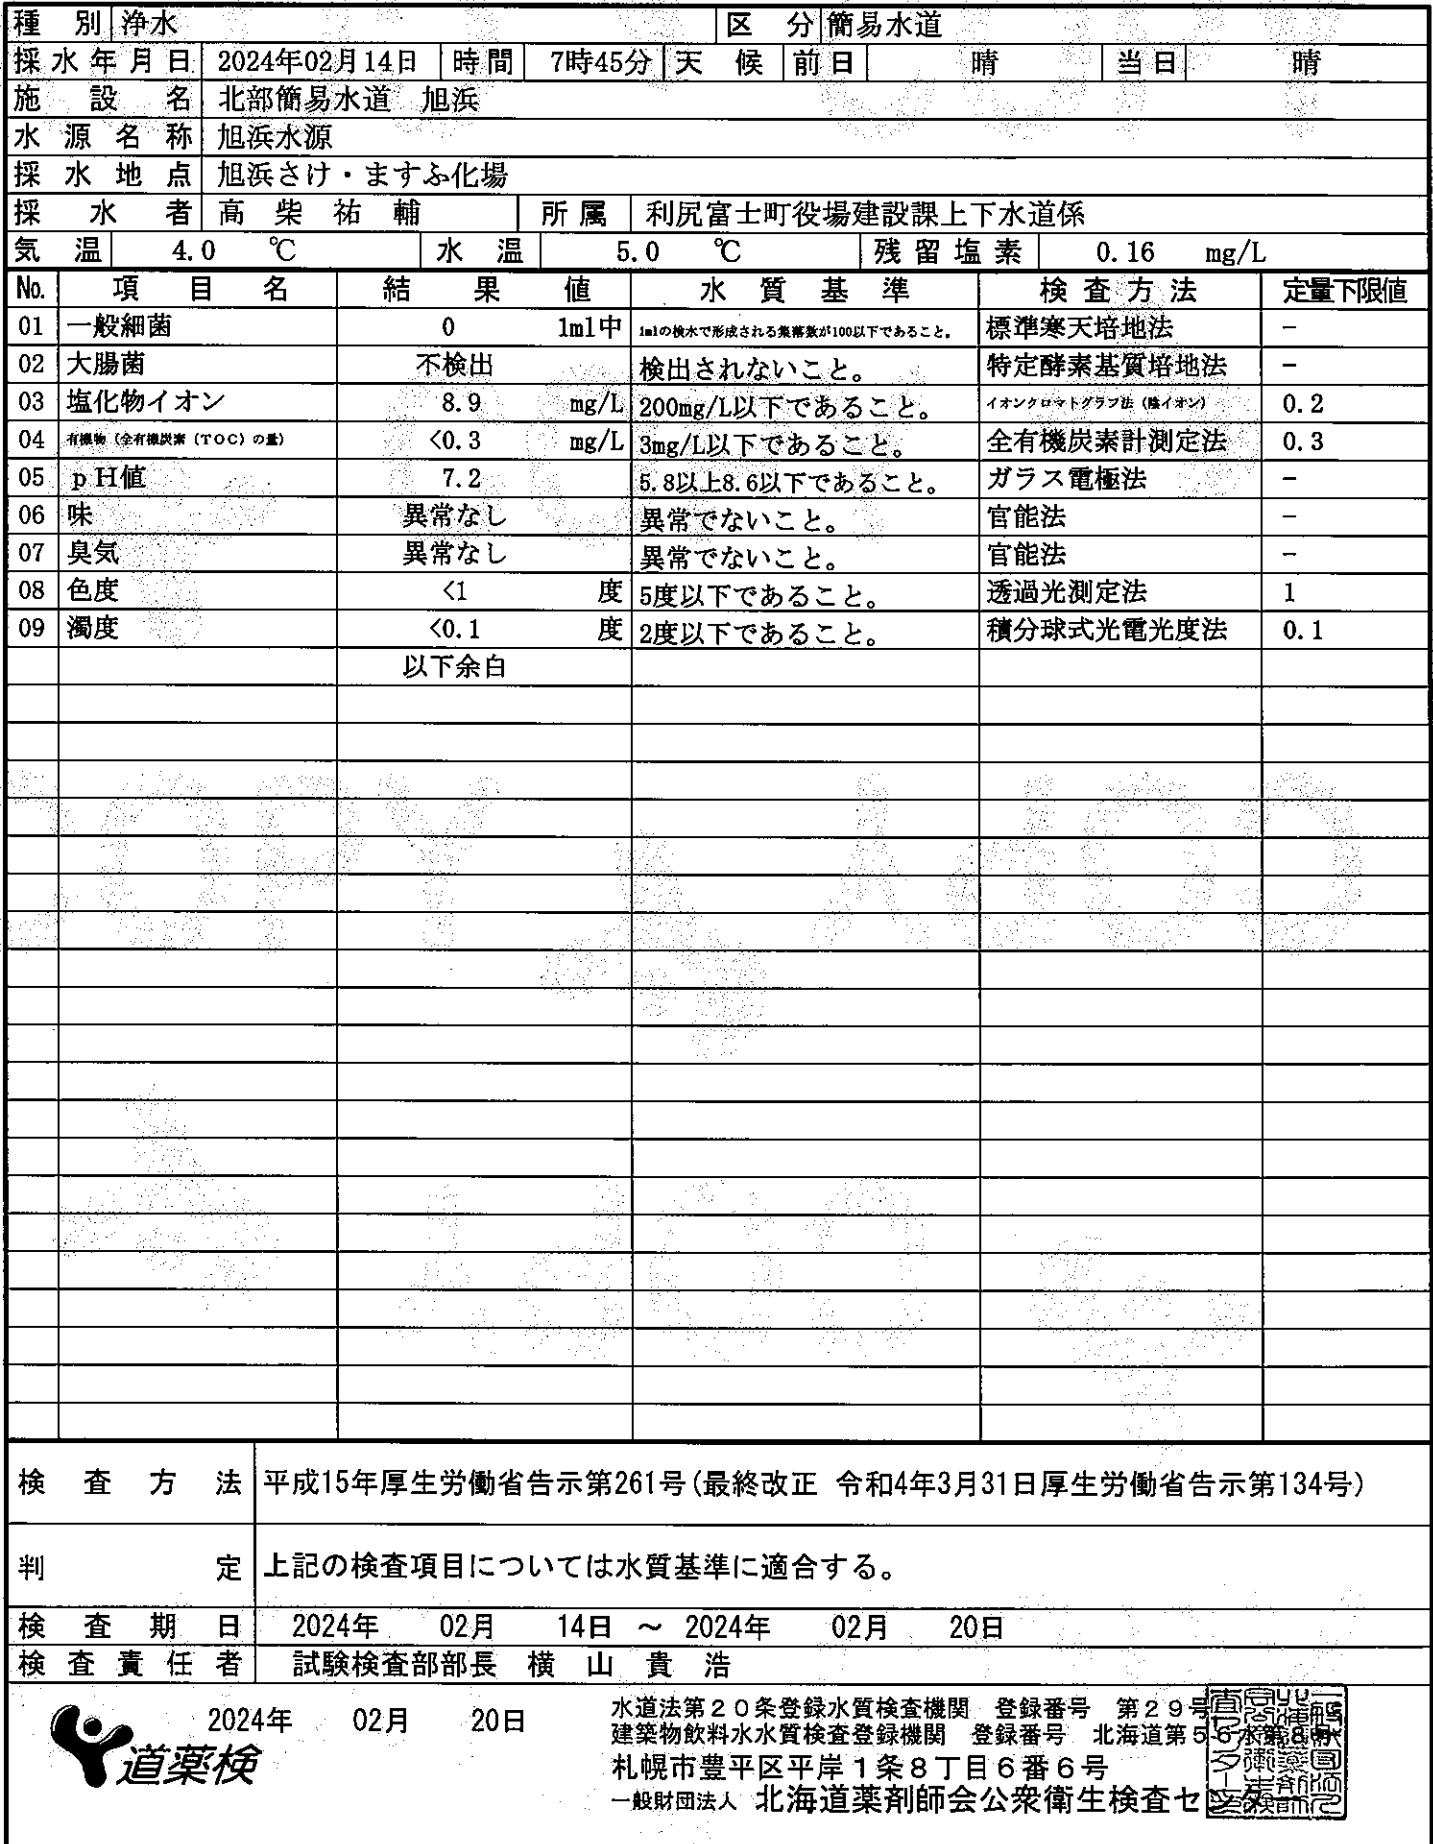 種別 浄水 区分 簡易水道
採水年月日 2024年02月14日 時間 7時45分 天候 前日 晴 当日 晴
施設名 北部簡易水道 旭浜
水源名称 旭浜水源
採水地点 旭浜さけ・ますふ化場
採水者 高柴祐輔 所属 利尻富士町役場建設課上下水道係
気温 4.0 ℃ 水温 5.0 ℃ 残留塩素 0.16 mg/L
No. 項目名 結果値 水質基準 検査方法 定量下限値
01 一般細菌 0 1ml中 1mlの検水で形成される集落数が100以下であること。 標準寒天培地法 −
02 大腸菌 不検出 検出されないこと。 特定酵素基質培地法 −
03 塩化物イオン 8.9 mg/L 200mg/L以下であること。 イオンクロマトグラフ法（陰イオン） 0.2
04 有機物（全有機炭素（TOC）の量） <0.3 mg/L 3mg/L以下であること。 全有機炭素計測定法 0.3
05 pH値 7.2 5.8以上8.6以下であること。 ガラス電極法 −
06 味 異常なし 異常でないこと。 官能法 −
07 臭気 異常なし 異常でないこと。 官能法 −
08 色度 <1 度 5度以下であること。 透過光測定法 1
09 濁度 <0.1 度 2度以下であること。 積分球式光電光度法 0.1
以下余白
検査方法 平成15年厚生労働省告示第261号(最終改正 令和4年3月31日厚生労働省告示第134号)
判定 上記の検査項目については水質基準に適合する。
検査期日 2024年 02月 14日 ～ 2024年 02月 20日
検査責任者 試験検査部部長 横山貴浩
2024年 02月 20日
道薬検
水道法第20条登録水質検査機関 登録番号 第29号
建築物飲料水水質検査登録機関 登録番号 北海道第56水第8号
札幌市豊平区平岸1条8丁目6番6号
一般財団法人 北海道薬剤師会公衆衛生検査センター